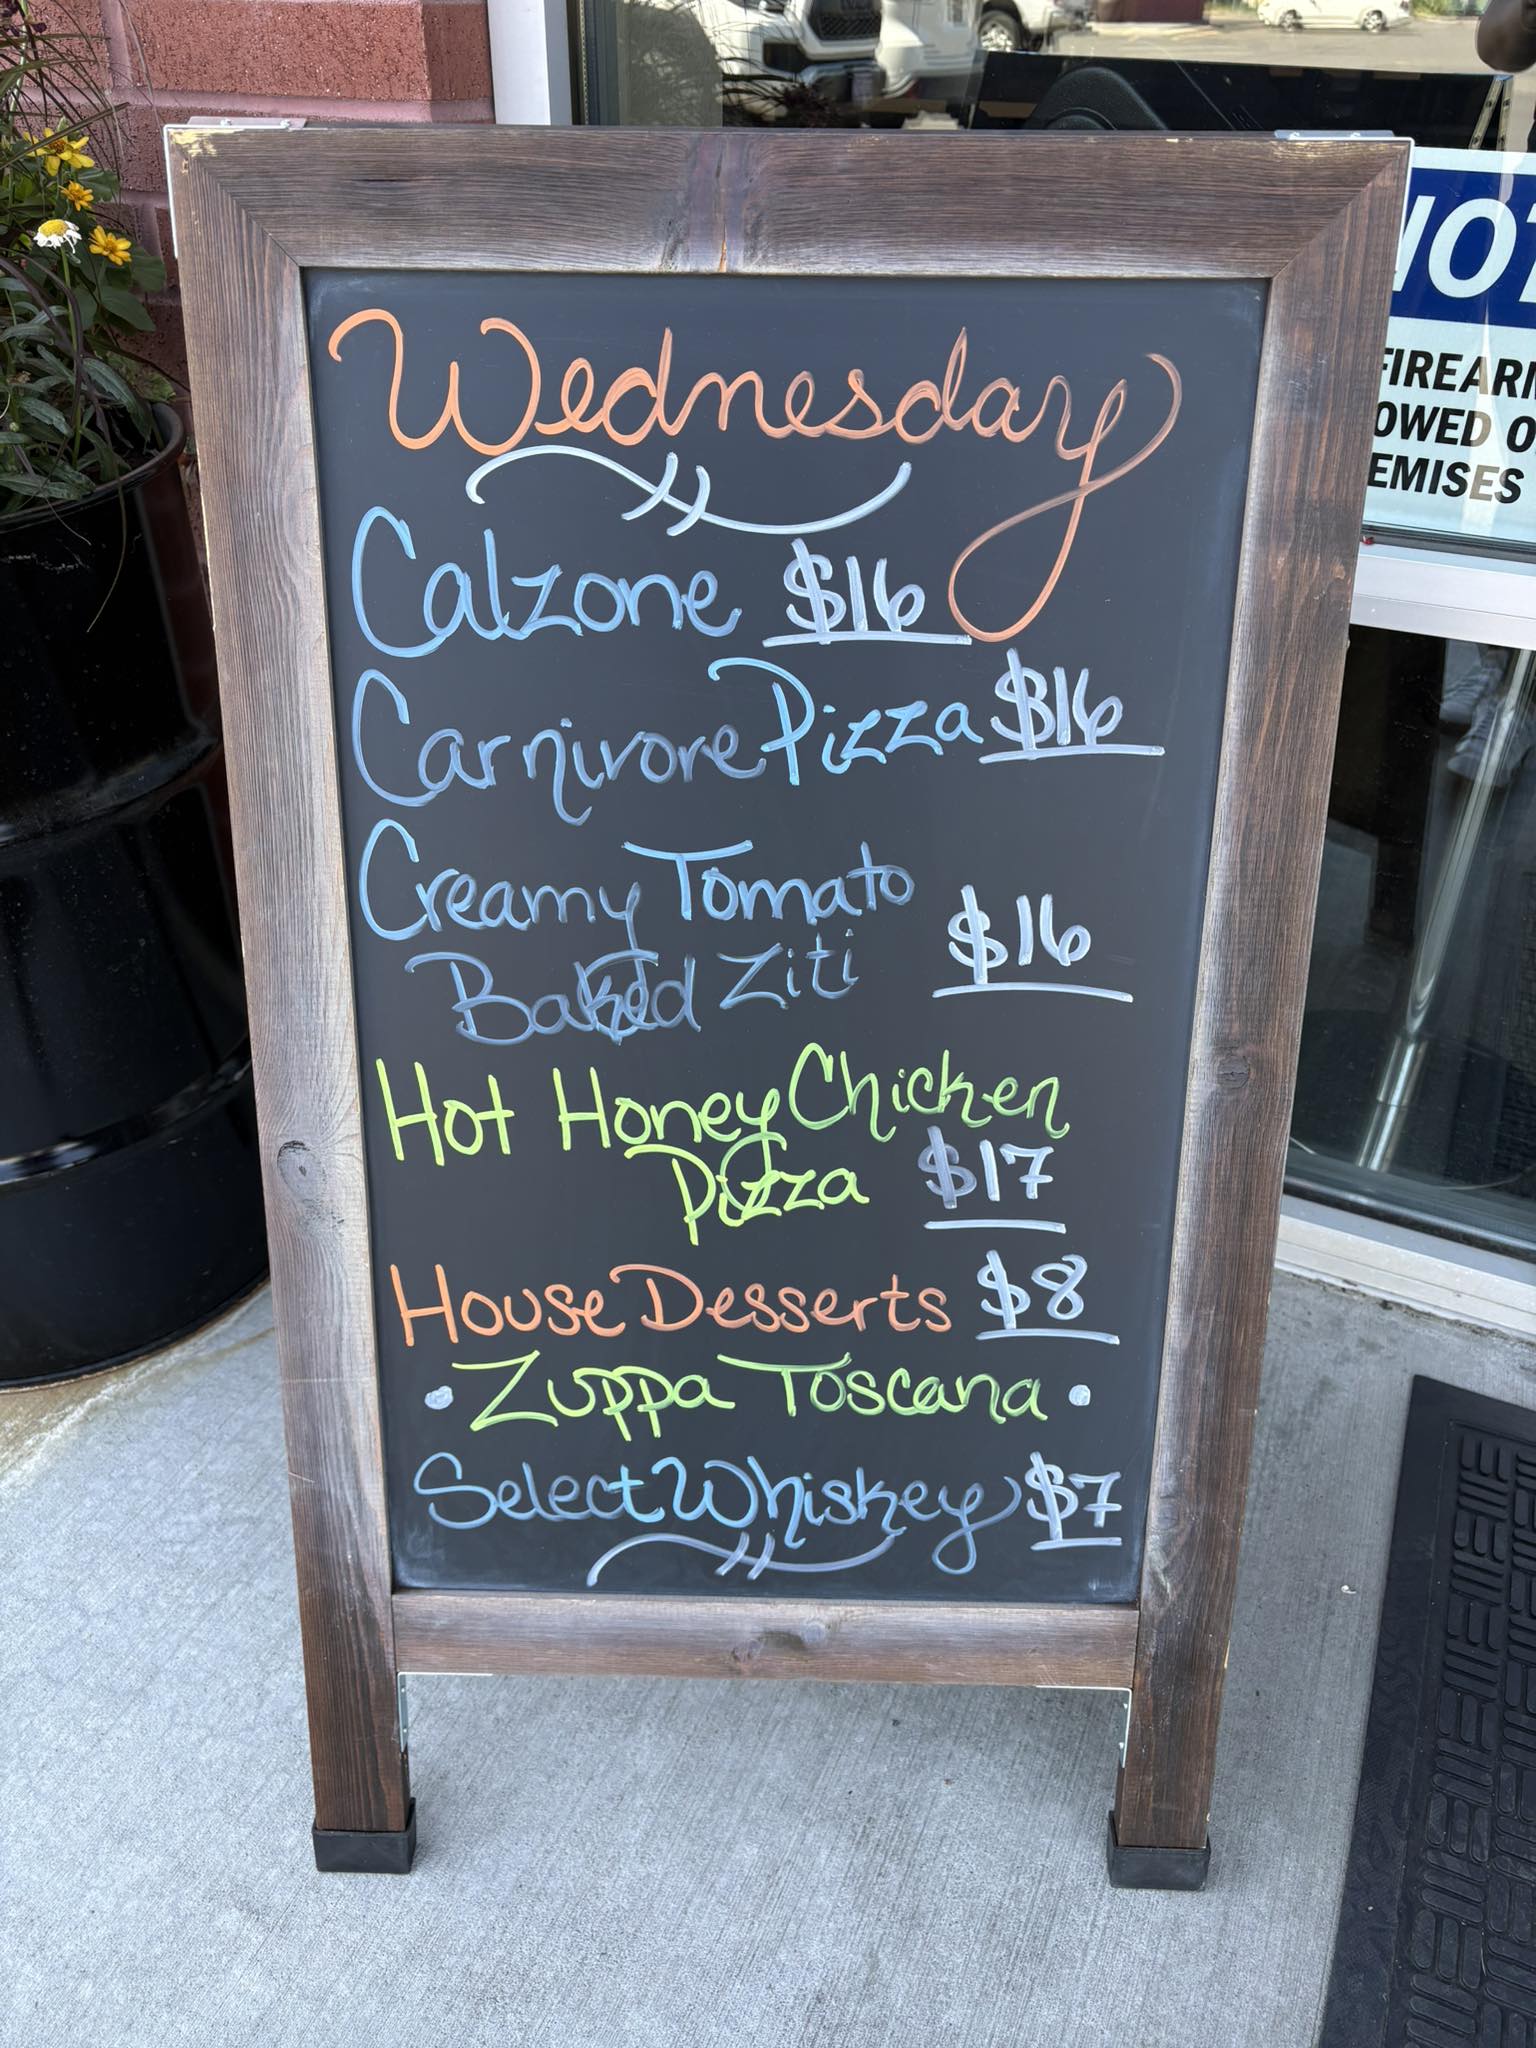 Wednesday
Calzone $16
Carnivore Pizza $16
Creamy Tomato
Baked Ziti $16
Hot Honey Chicken
Pizza $17
House Desserts $8
• Zuppa Toscana •
Select Whiskey $7
NOT
FIREARM
OWED O
EMISES